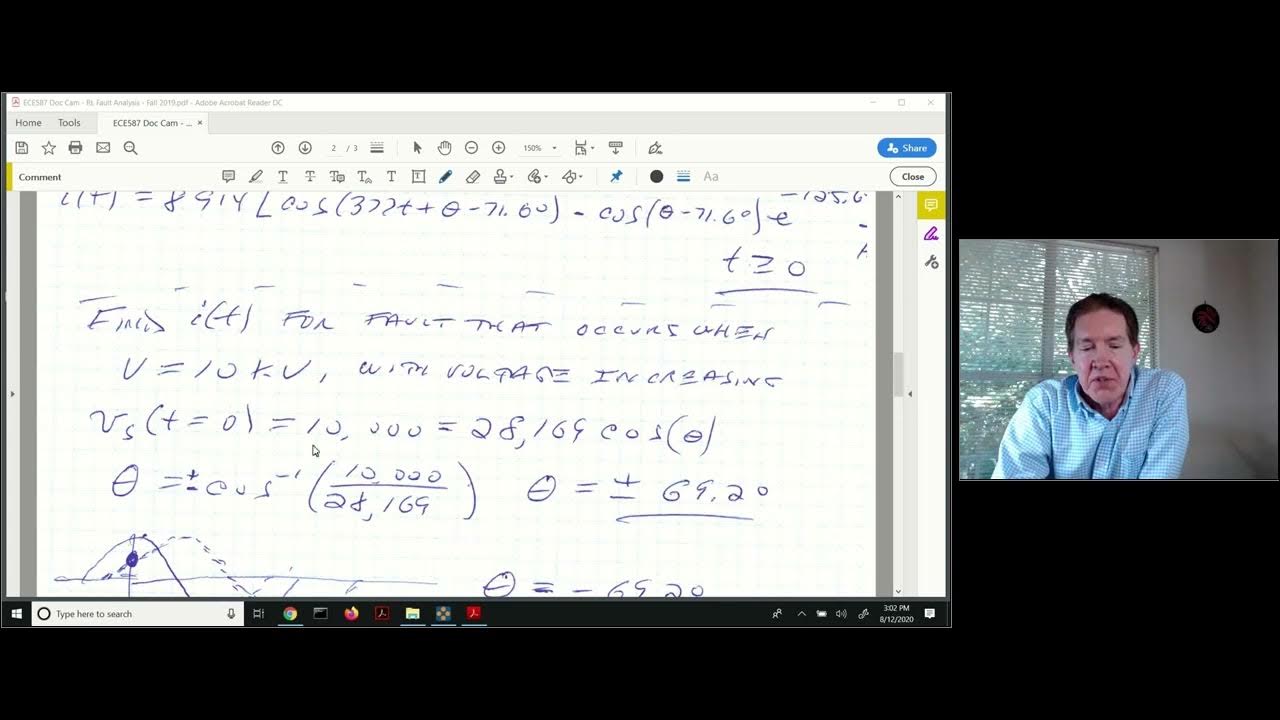 ECE587 Doc Cam - RL Fault Analysis - Fall 2019.pdf - Adobe Acrobat Reader DC
Home Tools ECE587 Doc Cam - ... ×
2 / 3 150% Share
Comment Aa Close
i(t) = 8914 [ cos(377t + θ - 71.6°) - cos(θ - 71.6°) e -125.6
t ≥ 0
FIND i(t) FOR FAULT THAT OCCURS WHEN
V = 10 kV, WITH VOLTAGE INCREASING
Vs(t=0) = 10,000 = 28,169 cos(θ)
θ = ± cos⁻¹ (10,000 / 28,169) θ = ± 69.2°
θ = - 69.2°
Type here to search
3:02 PM
8/12/2020